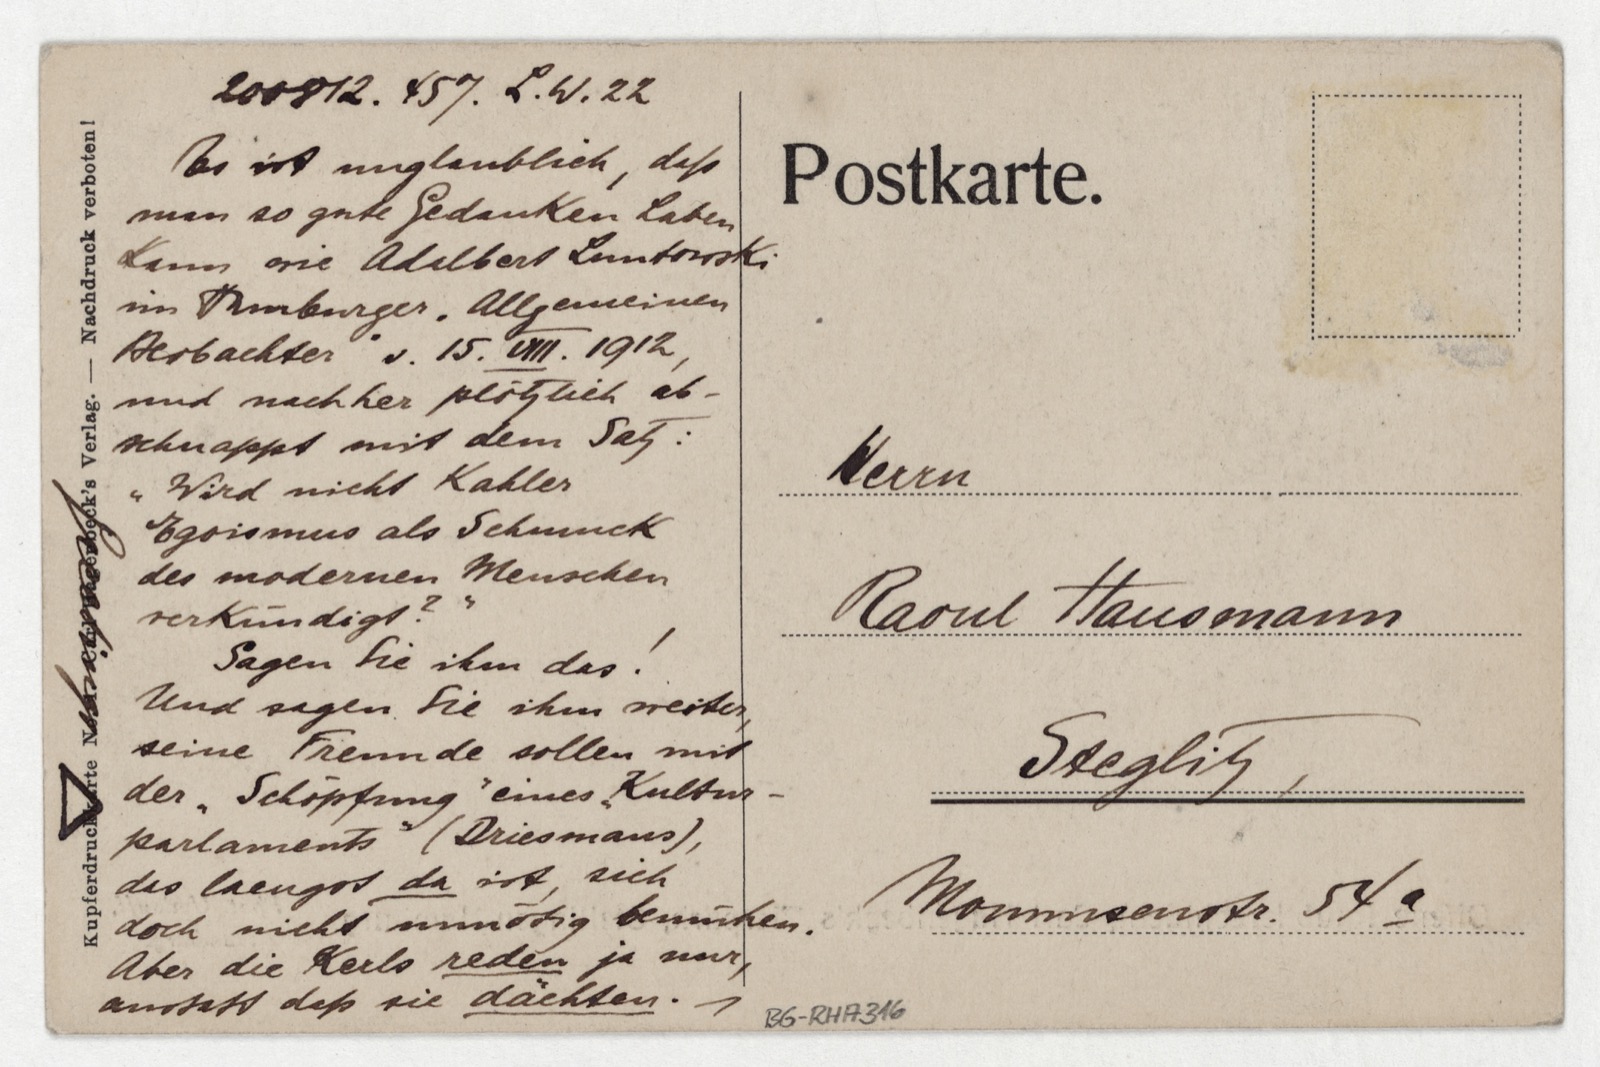 200812. 457. L.W. 22
Es ist unglaublich, daß
man so gute Gedanken haben
kann wie Adalbert Luntowski
im Hamburger „Allgemeinen
Beobachter“ v. 15. VIII. 1912,
und nachher plötzlich ab-
schnappt mit dem Satz:
„Wird nicht Kahler
Egoismus als Schmuck
des modernen Menschen
verkündigt?“
Sagen Sie ihm das!
Und sagen Sie ihm weiter,
seine Freunde sollen mit
der „Schöpfung“ eines „Kultur-
parlaments“ (Driesmans),
das laengst da ist, sich
doch nicht unnötig bemühen.
Aber die Kerls reden ja nur,
anstatt daß sie dächten. –
Kupferdruckkarte Verlag. — Nachdruck verboten!
Postkarte.
Herrn
Raoul Hausmann
Steglitz,
Mommsenstr. 54a
BG-RHA316